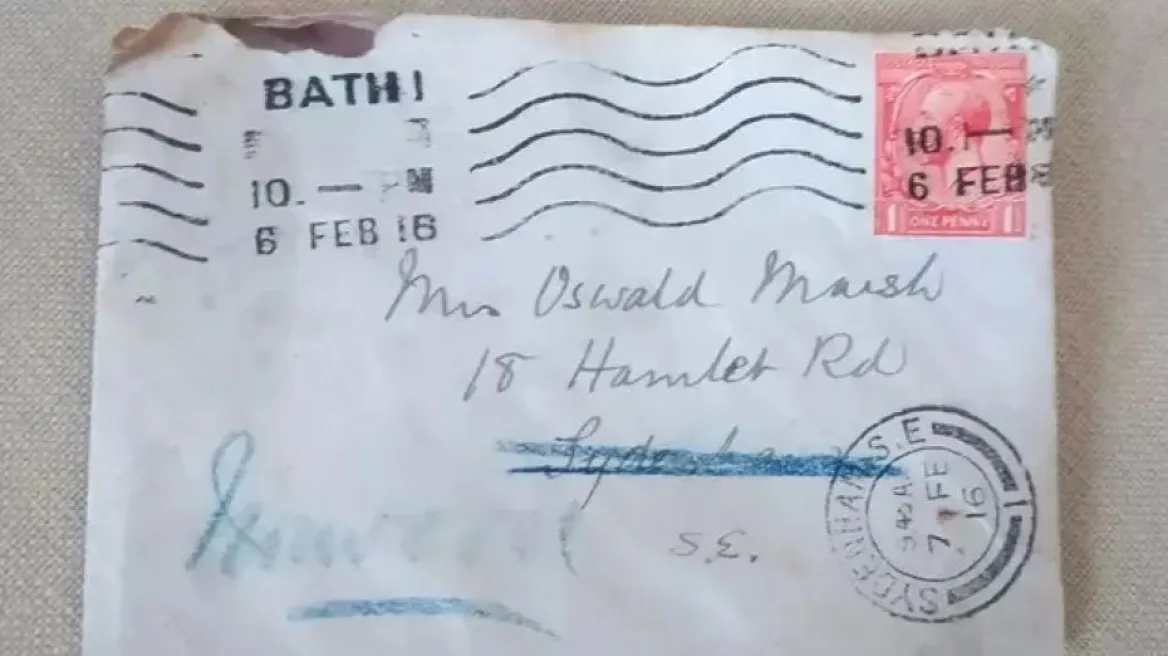 BATH 1
10. — PM
6 FEB 16
10. —
6 FEB
1 ONE PENNY 1
Mrs Oswald Marsh
18 Hamlet Rd
Sydenham
S.E.
SYDENHAM S.E
9 45 A
7 FE
16